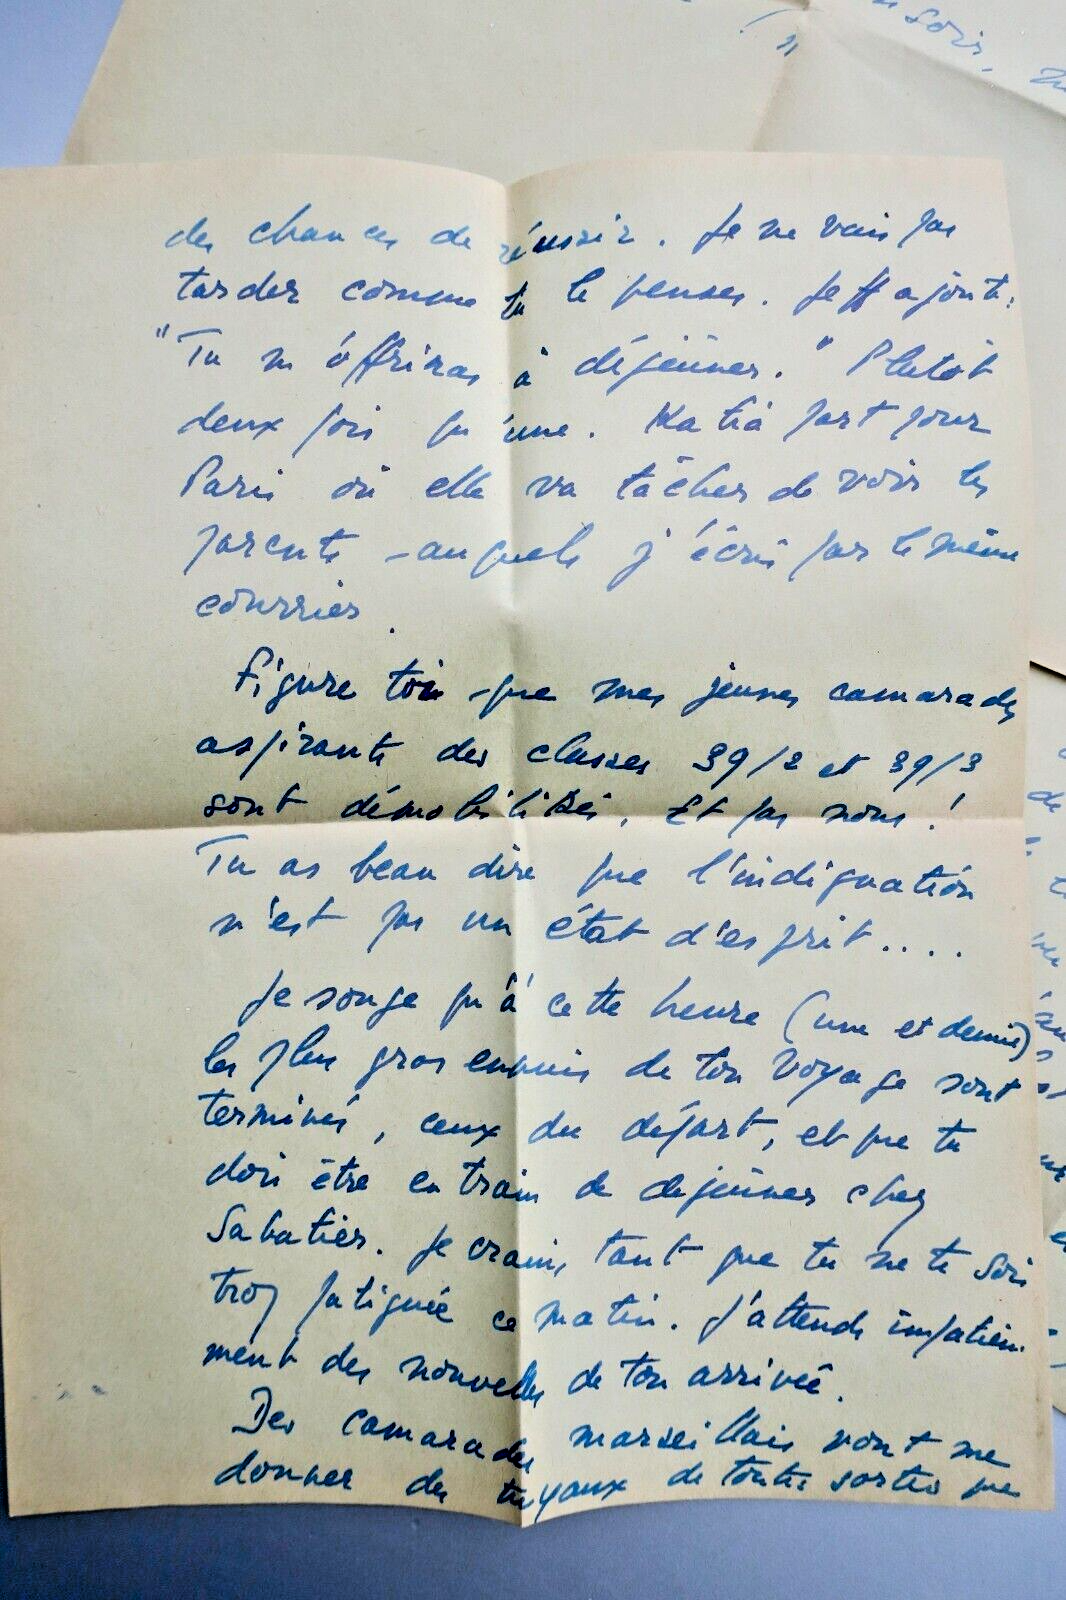 soir,
des chances de réussir. Je ne vais pas
tarder comme tu le penses. Jeff ajoute:
"Tu m'offriras à déjeuner." Plutôt
deux fois qu'une. Katia part pour
Paris où elle va tâcher de voir les
parents - auquels j'écris par le même
courrier.
Figure toi que mes jeunes camarades
aspirants des classes 39/2 et 39/3
sont démobilisés. Et pas nous!
Tu as beau dire que l'indignation
n'est pas un état d'esprit....
Je songe qu'à cette heure (une et demie)
les plus gros ennuis de ton voyage sont
terminés, ceux du départ, et que tu
dois être en train de déjeuner chez
Sabatier. Je crains tant que tu ne te sois
trop fatiguée ce matin. J'attends impatiem-
ment des nouvelles de ton arrivée.
Des camarades marseillais vont me
donner des tuyaux de toutes sortes que
de